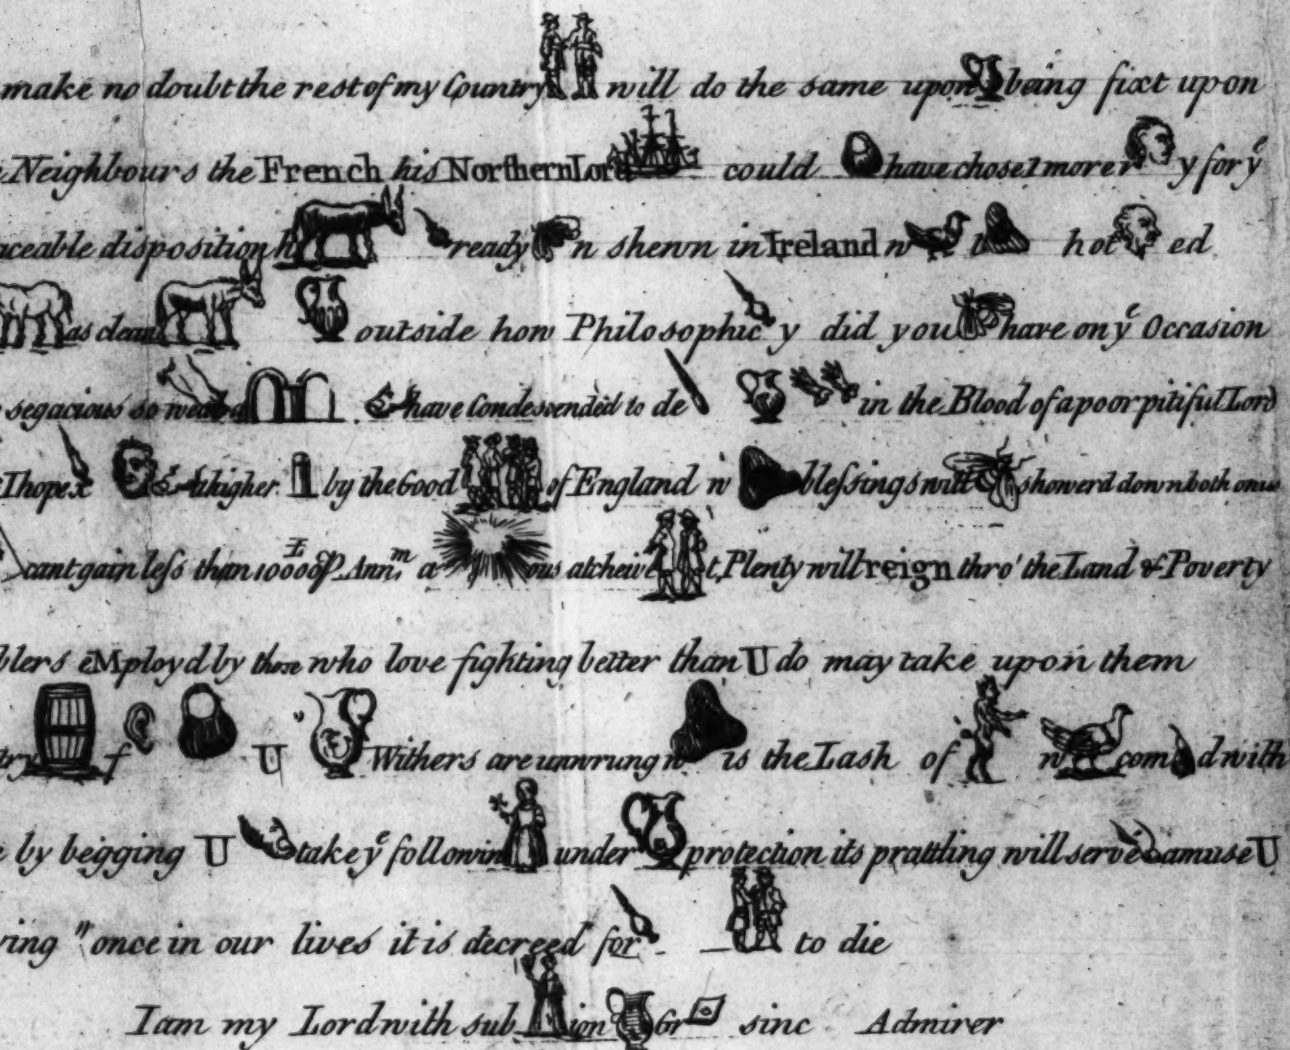 make no doubt the rest of my Country will do the same upon being fixt upon
Neighbours the French his Northern Lord could have chose 1 more r y for yᵉ
aceable disposition h ready n shewn in Ireland w t hot ed
as clean outside how Philosophic y did you have on yᵉ Occasion
segacious so & have Condescended to de in the Blood of a poor pitiful Lord
I hope & higher by the Good of England w blessings will showerd down both on us
cant gain less than 10000£ P. Annᵐ a ous atcheiv t, Plenty will reign thro' the Land & Poverty
blers eMployd by those who love fighting better than U do may take upon them
try f U Withers are unwrung w is the Lash of w com d with
by begging U take yᵉ following under protection its prattling will serve amuse U
ving "once in our lives it is decreed" for to die
I am my Lord with sub ion Gr sinc Admirer